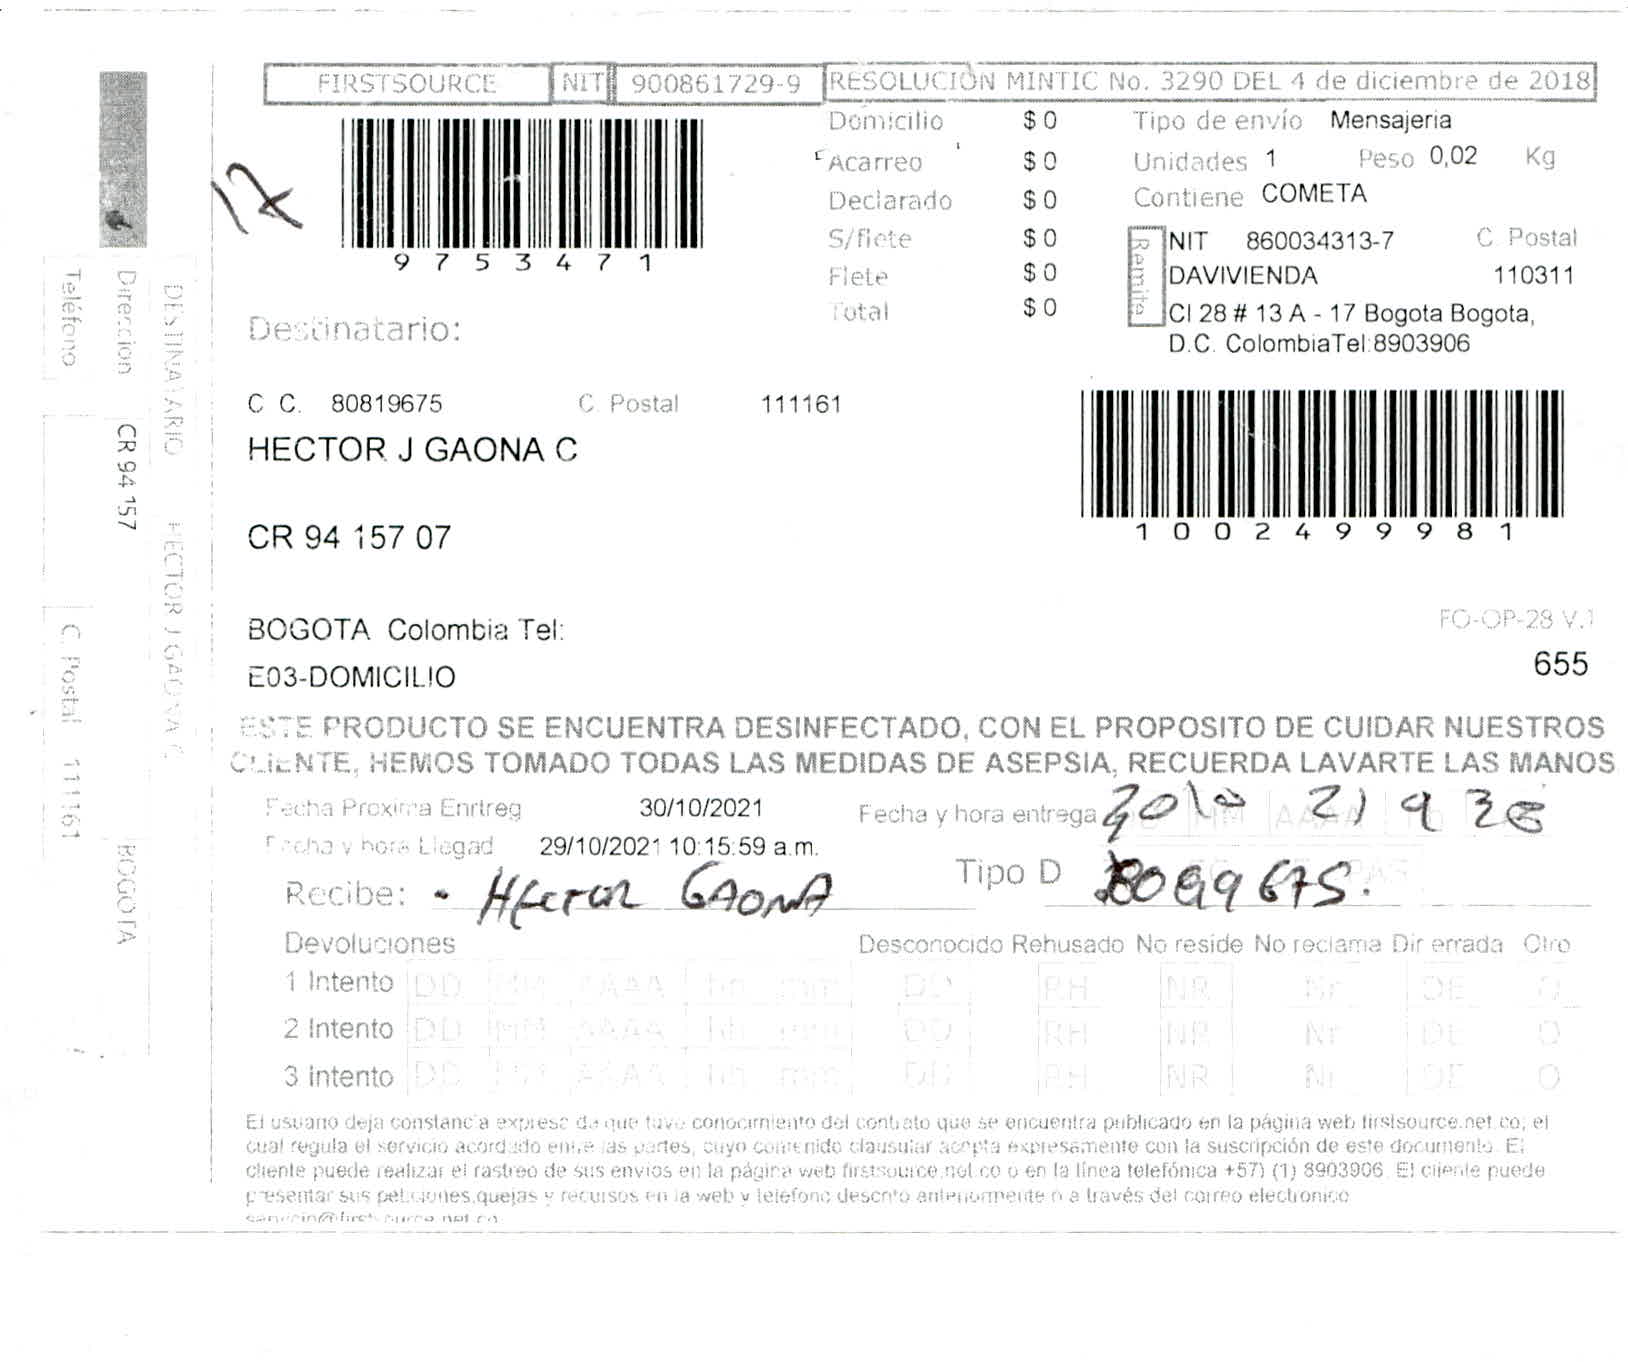 FIRSTSOURCE NIT 900861729-9 RESOLUCIÓN MINTIC No. 3290 DEL 4 de diciembre de 2018
17
9 7 5 3 4 7 1
Domicilio $ 0
Acarreo $ 0
Declarado $ 0
S/flete $ 0
Flete $ 0
Total $ 0
Tipo de envío Mensajeria
Unidades 1 Peso 0,02 Kg
Contiene COMETA
Remite
NIT 860034313-7 C. Postal
DAVIVIENDA 110311
Cl 28 # 13 A - 17 Bogota Bogota,
D.C. ColombiaTel:8903906
Destinatario:
C C. 80819675 C. Postal 111161
HECTOR J GAONA C
1 0 0 2 4 9 9 9 8 1
CR 94 157 07
BOGOTA Colombia Tel:
E03-DOMICILIO
FO-OP-28 V.1
655
ESTE PRODUCTO SE ENCUENTRA DESINFECTADO, CON EL PROPOSITO DE CUIDAR NUESTROS
CLIENTE, HEMOS TOMADO TODAS LAS MEDIDAS DE ASEPSIA, RECUERDA LAVARTE LAS MANOS
Fecha Proxima Enrtreg 30/10/2021
Fecha y hora entrega 21 9
Fecha y hora Llegad 29/10/2021 10:15:59 a.m.
Tipo D
Recibe: HECTOR GAONA
Devoluciones Desconocido Rehusado No reside No reclama Dir errada Otro
1 Intento DD MM AAAA hh mm DD RH NR Nr DE O
2 Intento DD MM AAAA hh mm DD RH NR Nr DE O
3 Intento DD MM AAAA hh mm DD RH NR Nr DE O
El usuario deja constancia expresa de que tuvo conocimiento del contrato que se encuentra publicado en la página web firstsource.net.co; el
cual regula el servicio acordado entre las partes, cuyo contenido clausular acepta expresamente con la suscripción de este documento. El
cliente puede realizar el rastreo de sus envios en la página web firstsource.net.co o en la línea telefónica +57) (1) 8903906. El cliente puede
presentar sus peticiones,quejas y recursos en la web y telefono descrito anteriormente o a través del correo electronico
servicio@firstsource.net.co
Teléfono C. Postal 111161
Direccion CR 94 157 BOGOTA
DESTINATARIO HECTOR J GAONA C